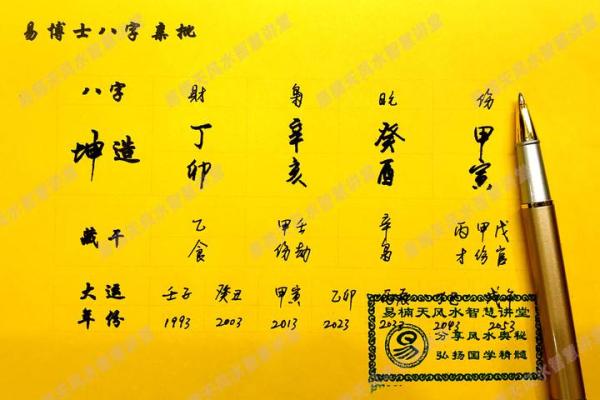 易博士八字批
八字 財 枭 日元 伤
坤造 丁 辛 癸 甲
卯 亥 酉 寅
藏干 乙 甲壬 辛 丙甲戊
食 伤劫 枭 才伤官
大运 壬子 癸丑 甲寅 乙卯
年份 1993 2003 2013 2023 2033 2043 2053
易楠天风水智慧讲堂
易
分享风水奥秘
弘扬国学精髓